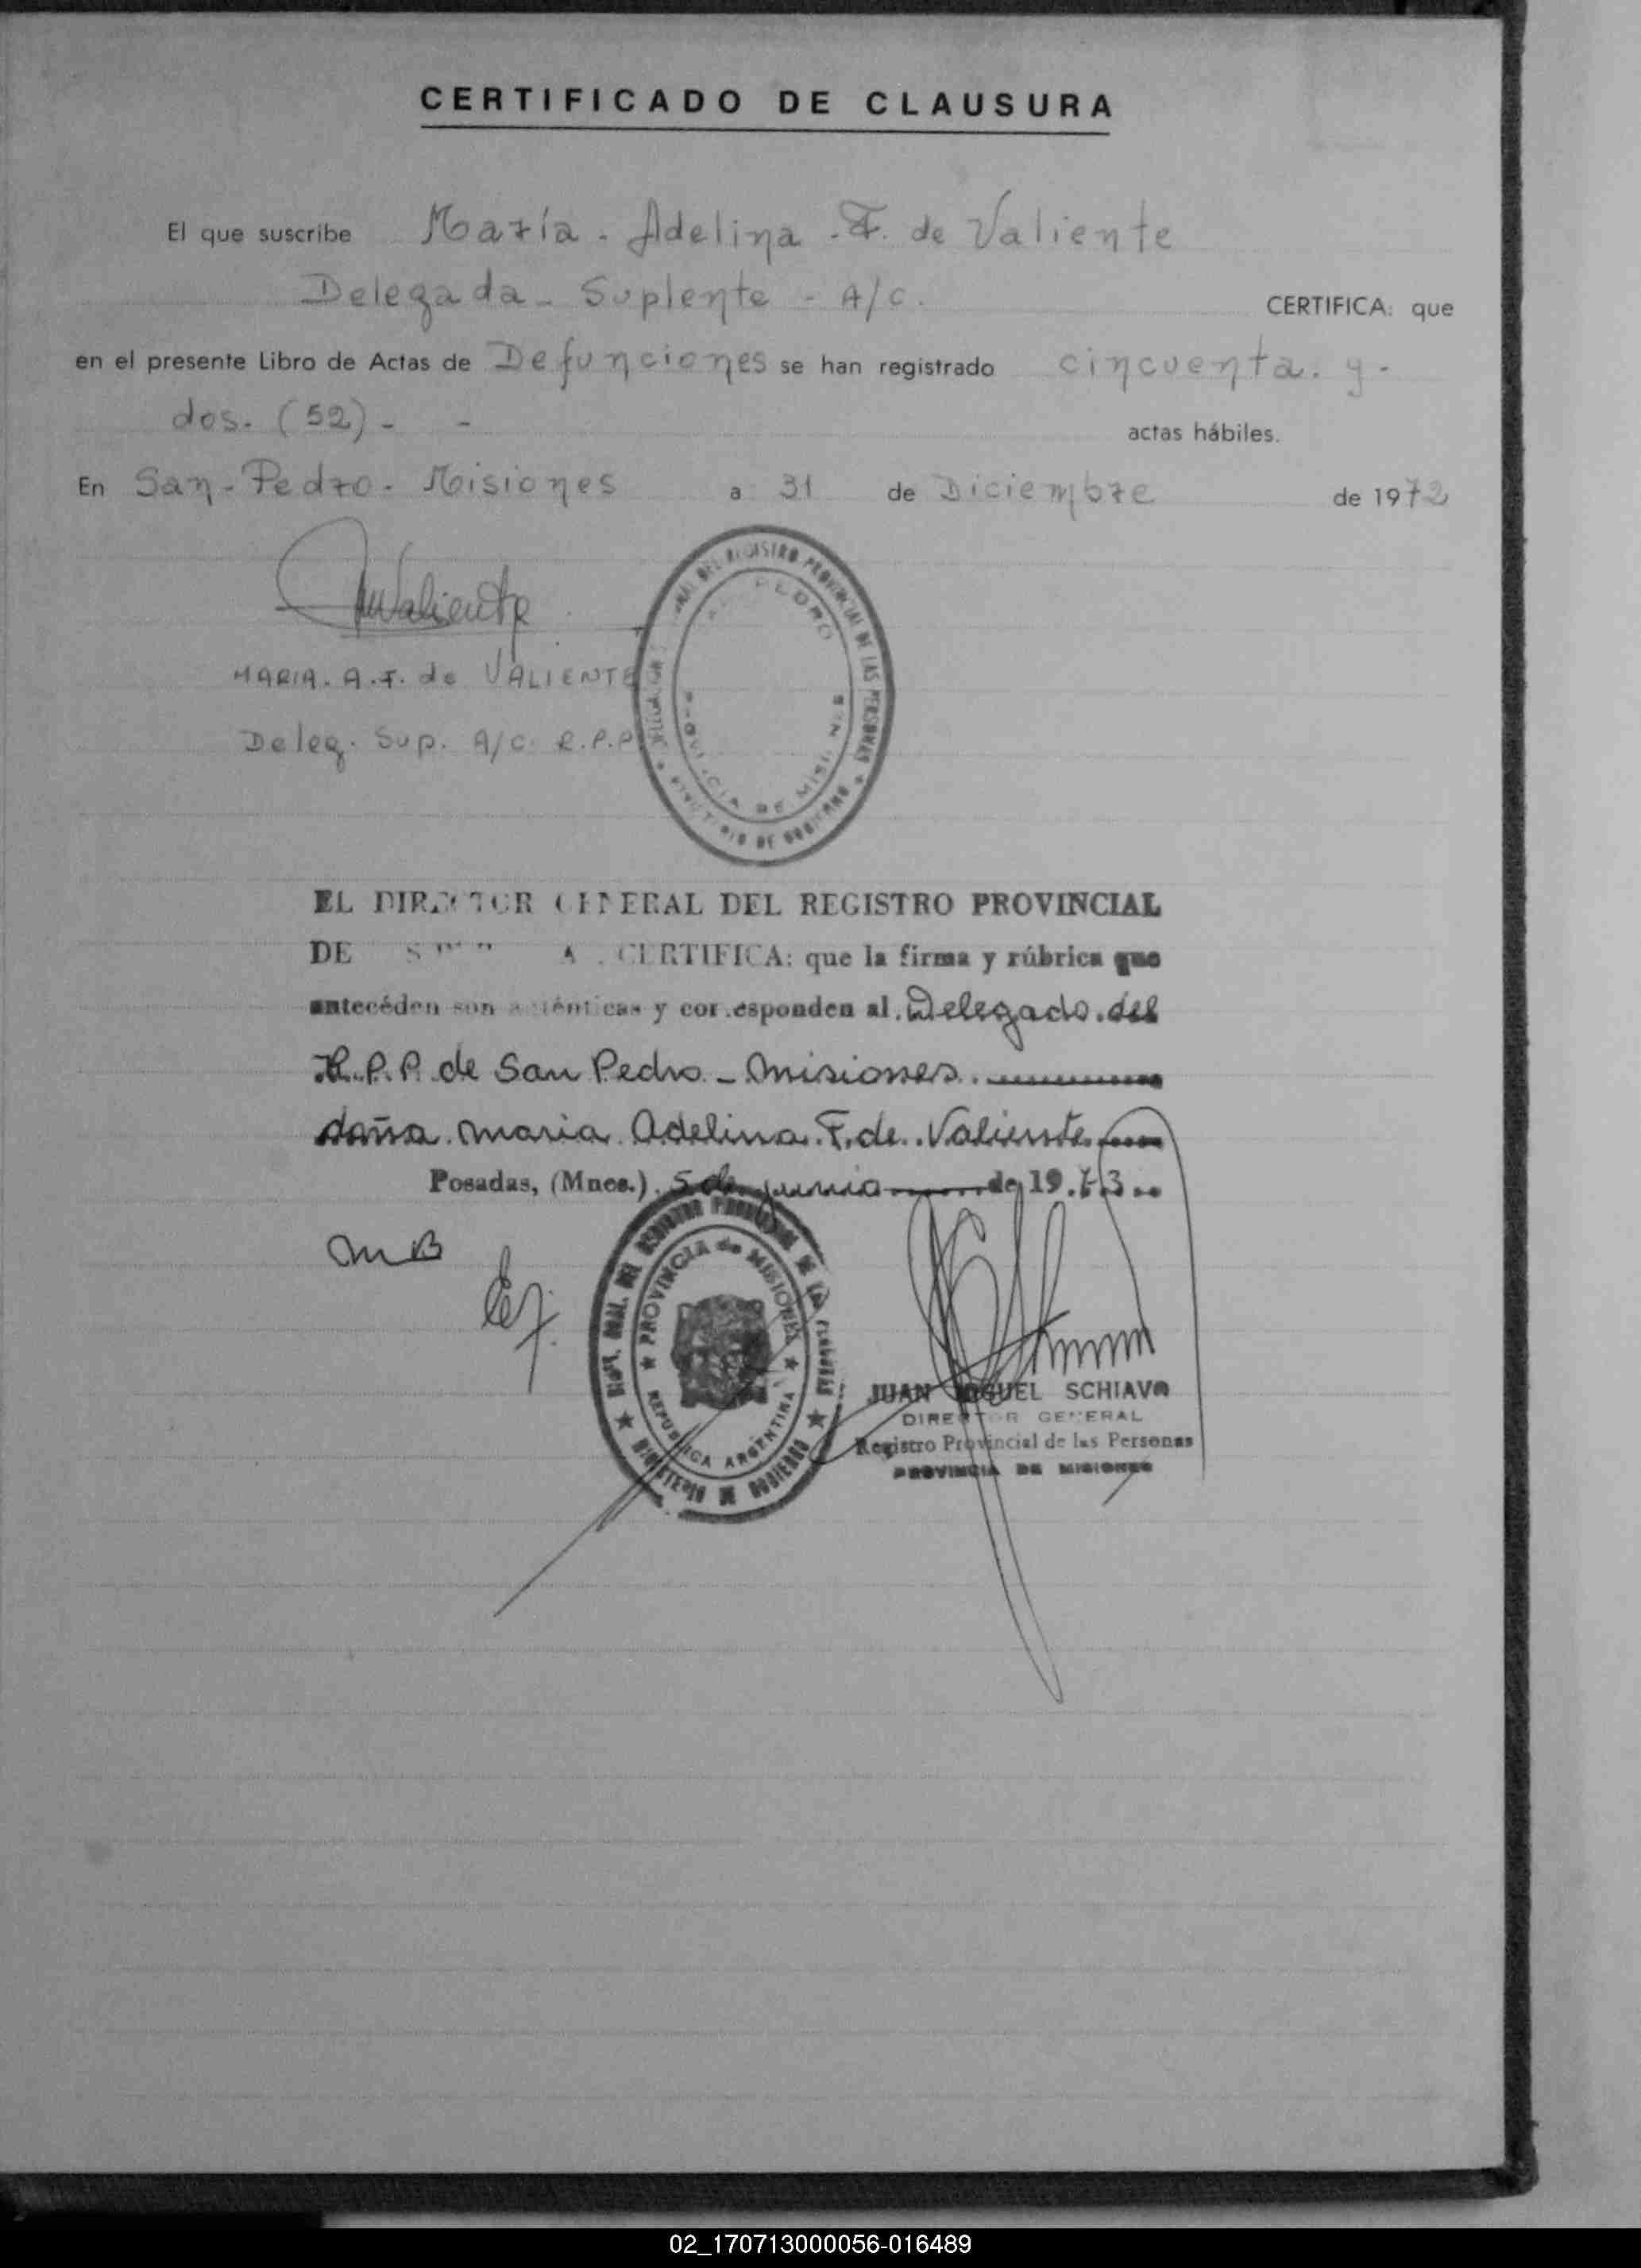 CERTIFICADO DE CLAUSURA
El que suscribe María - Adelina - F. de Valiente
Delegada - Suplente - A/c. CERTIFICA: que
en el presente Libro de Actas de Defunciones se han registrado cincuenta. y -
dos. (52) - - actas hábiles.
En San - Pedro - Misiones a 31 de Diciembre de 1972
Valiente
MARIA. A. F. de VALIENTE
Deleg. Sup. A/C. R.P.P
DEL REGISTRO PROVINCIAL DE LAS PERSONAS
PEDRO
PROVINCIA DE MISIONES
MINISTERIO DE GOBIERNO
EL DIRECTOR GENERAL DEL REGISTRO PROVINCIAL
DE CERTIFICA: que la firma y rúbrica que
antecéden son auténticas y corresponden al Delegado del
R.P.P. de San Pedro - Misiones
doña Maria Adelina F. de Valiente
Posadas, (Mnes.) 5 de junio de 1973
MB
PROVINCIA de MISIONES
REPUBLICA ARGENTINA
MINISTERIO DE GOBIERNO
JUAN MIGUEL SCHIAVO
DIRECTOR GENERAL
Registro Provincial de las Personas
PROVINCIA DE MISIONES
02_170713000056-016489